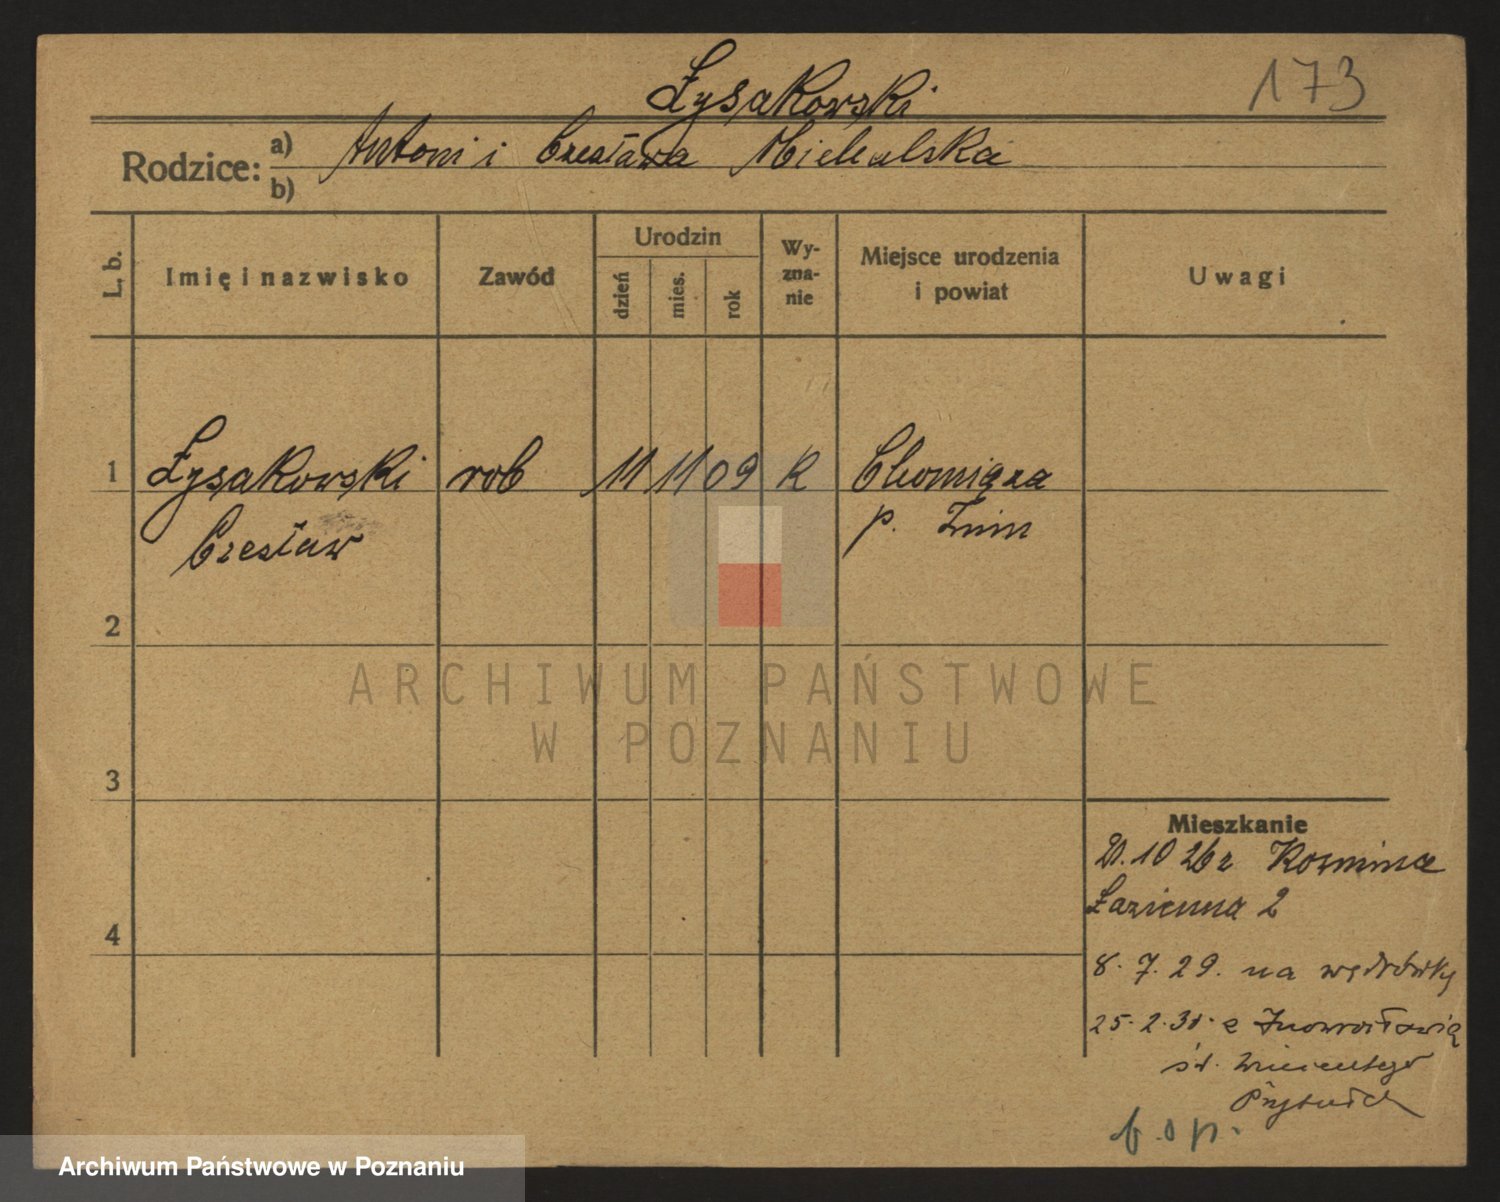 173
Łysakowski
Rodzice: a) Antoni i Czesława Michalska
b)
L. b.
Imię i nazwisko
Zawód
Urodzin
dzień
mies.
rok
Wy-
zna-
nie
Miejsce urodzenia
i powiat
Uwagi
1 Łysakowski rob 11 11 09 k Chomiąza
Czesław p. Żnin
2
3
4
Mieszkanie
10 26 z Kozmina
Łazienna 2
8. 7. 29. na wędrówkę
25. 2. 31. z Inowrocławia
św. Wincentego
Przytułek
b. o p.
ARCHIWUM PAŃSTWOWE
W POZNANIU
Archiwum Państwowe w Poznaniu